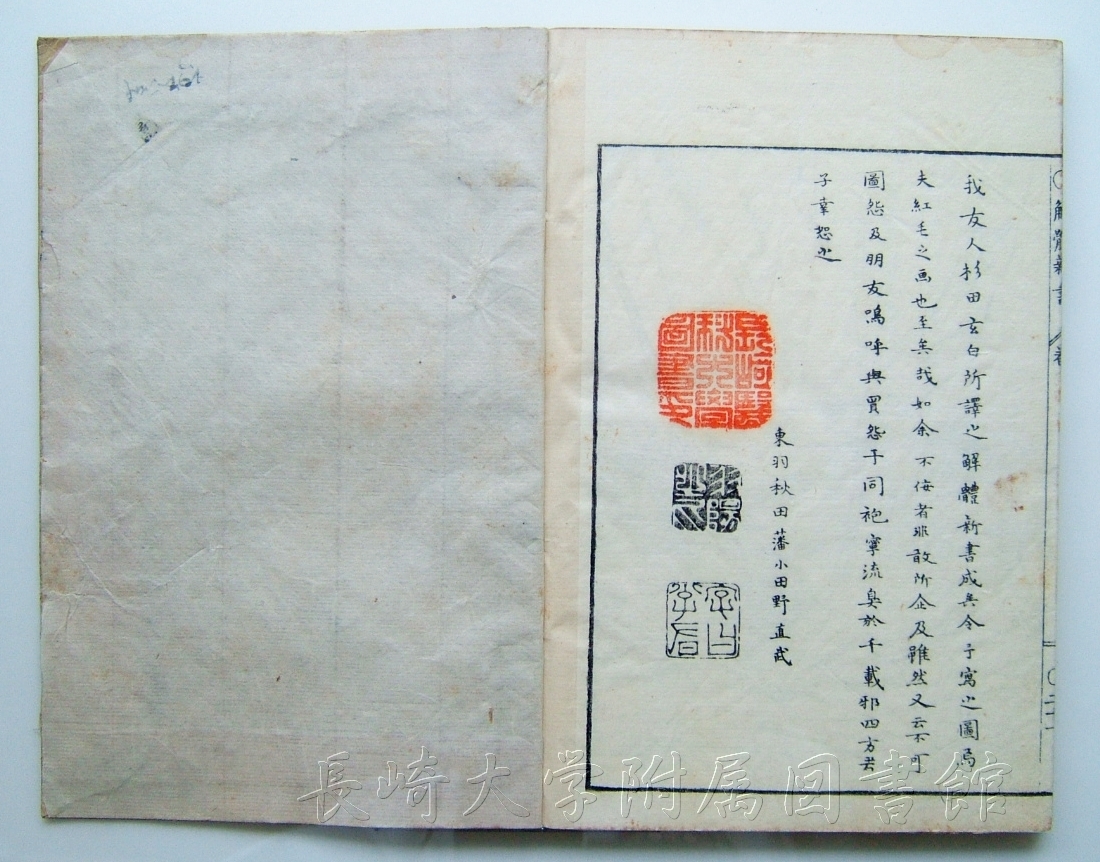 我友人杉田玄白所譯之解體新書成矣令予寫之圖焉
夫紅毛之画也至矣哉如余不佞者非敢所企及雖然又云不可
圖怨及朋友嗚呼與買怨于同袍寧流臭於千載邪四方君
子幸恕之
東羽秋田藩小田野直武
解體新書
長崎大学附属図書館